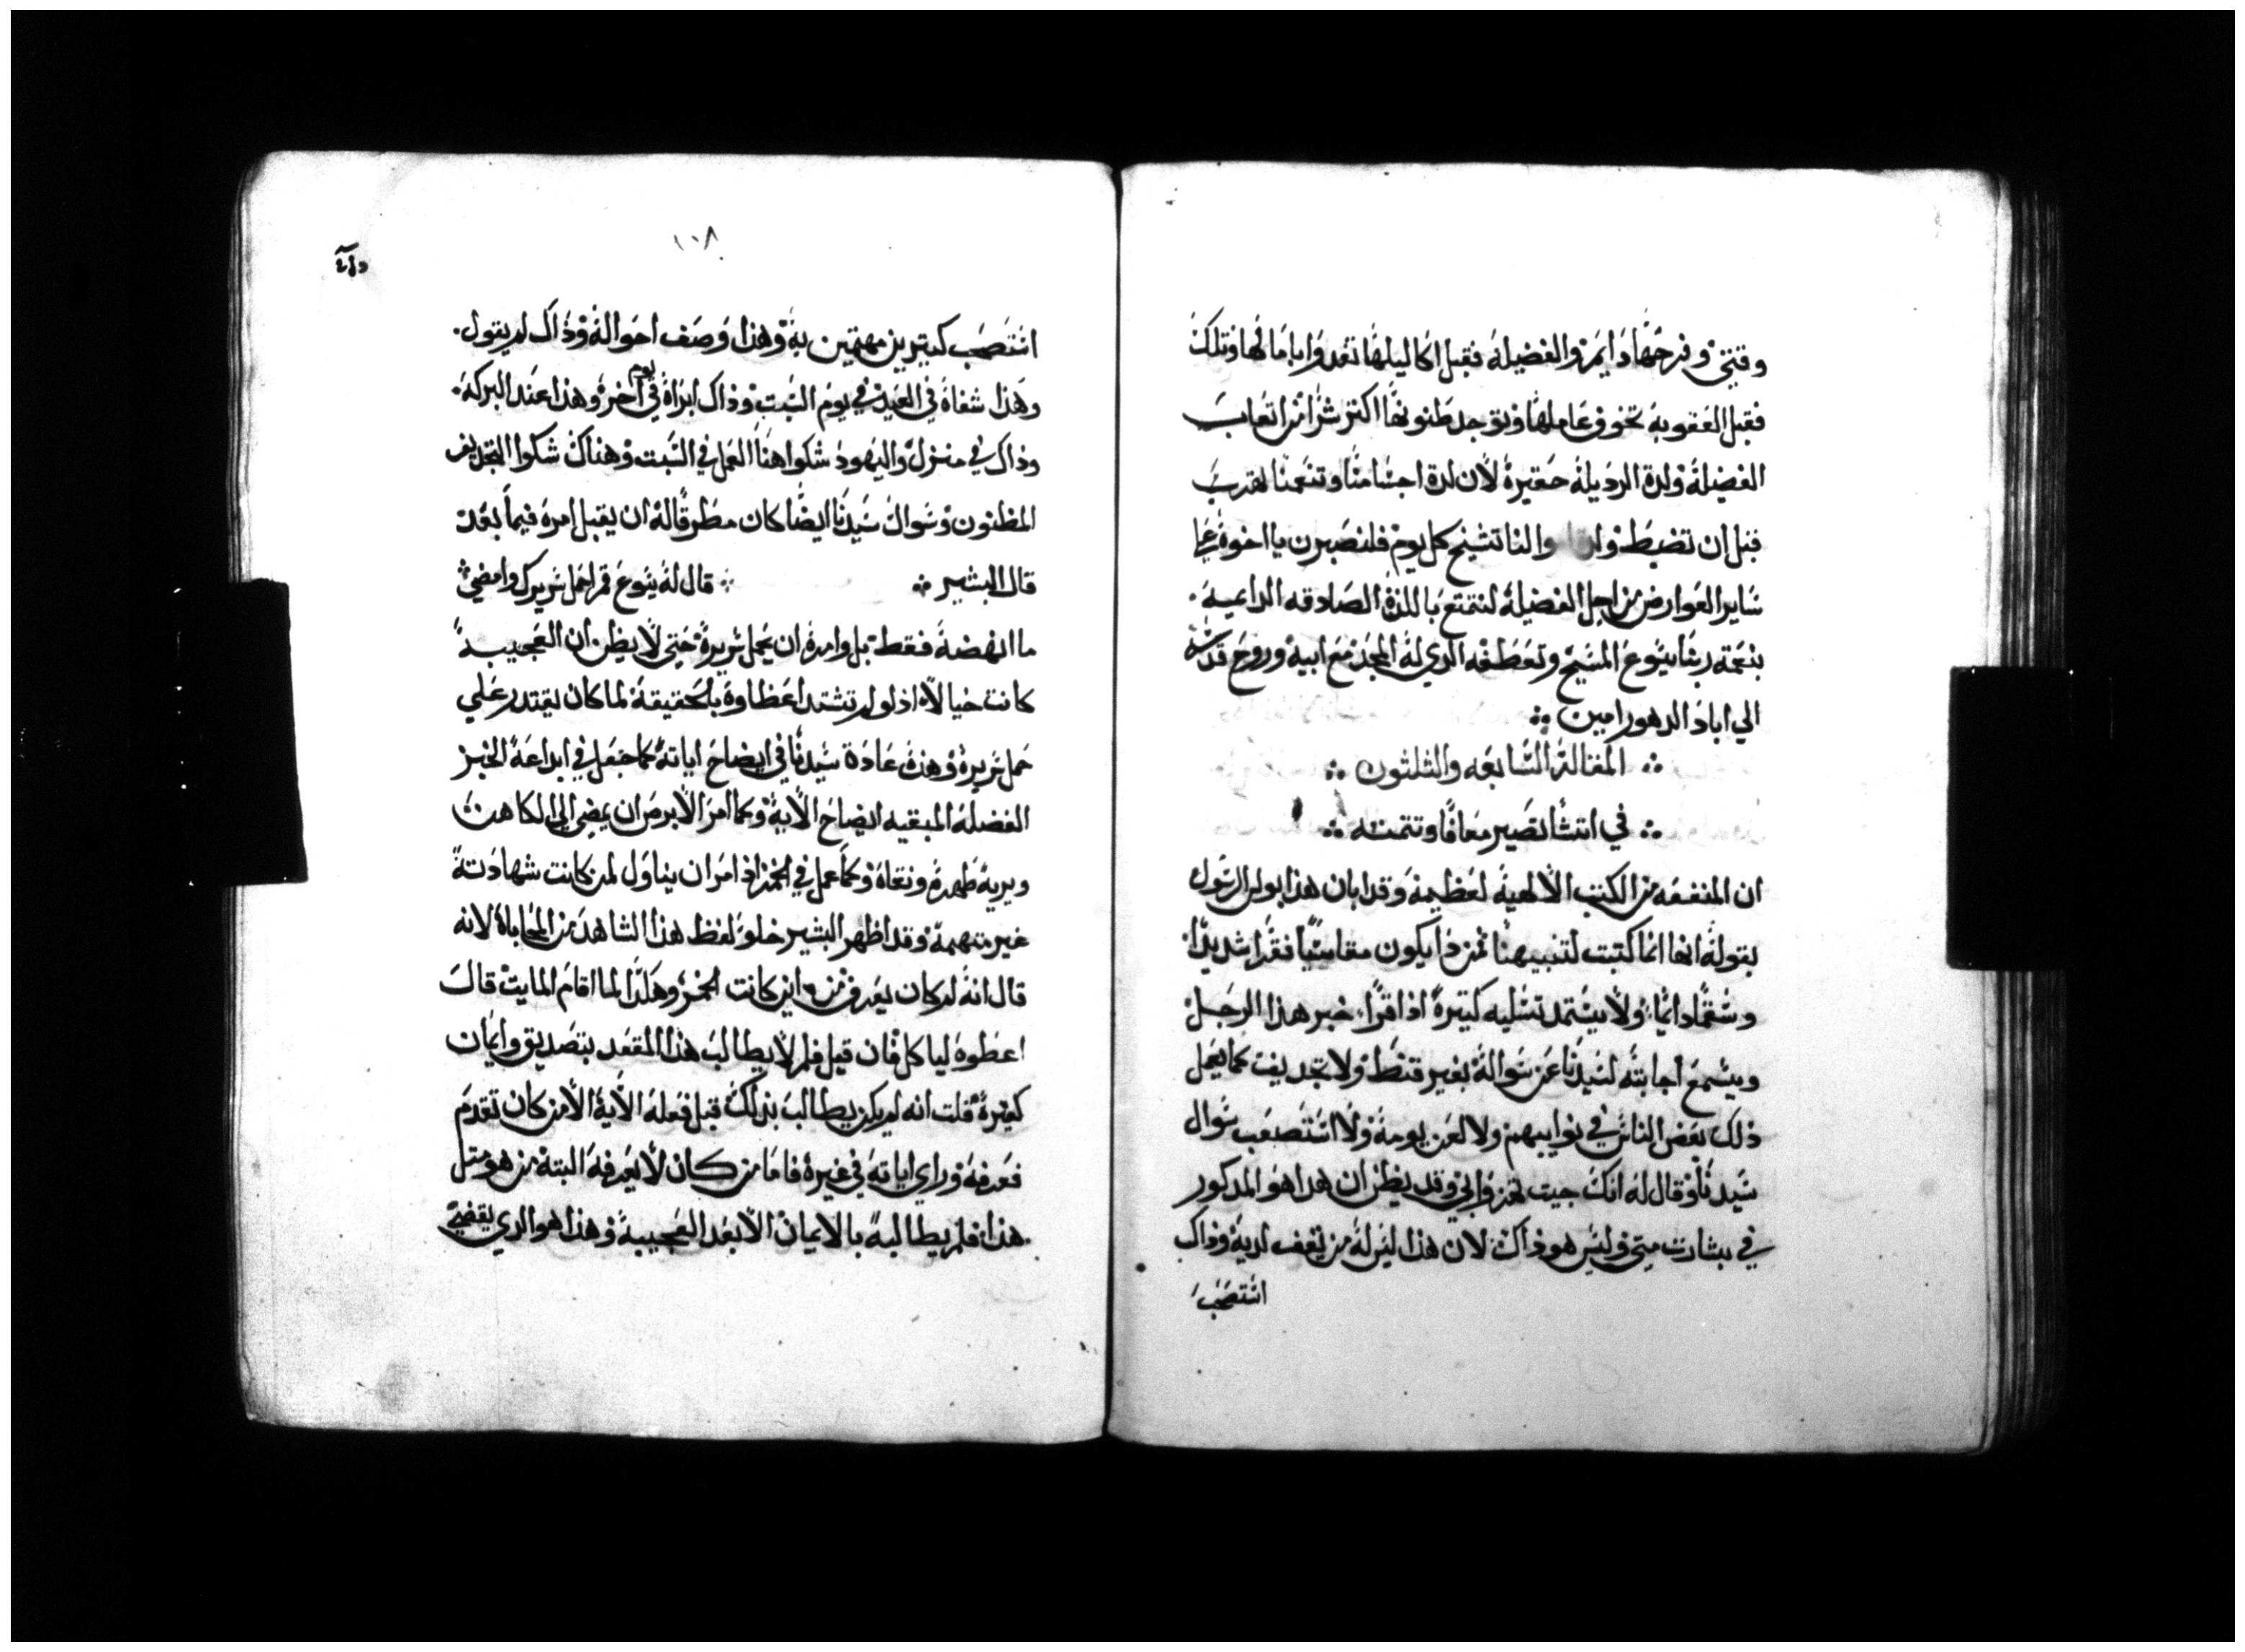 وقتيتي وفرحتها دايمه والفضيله فقبل اكاليلها تغدوا باماناتها وتلك
فقبل العقوبه تخوف عاملها وتوجد ظنونها اكثر شرا من اتعاب
الفضيله ولدة الرديله حقيره لان لدة اجسامنا وتنعمنا تهرب
قبل ان تضبط والناس تشيخ كل يوم فلنصبرن يا اخوة علي
ساير العوارض من اجل الفضيله لنتمتع باللذة الصادقه الداعيه
بنعمه ربنا يسوع المسيح وتعطفه الدي له المجد مع ابيه وروح قدسه
الي اباد الدهور امين
المقالة السابعه والثلثون
في انتشا تصير معافا وتتمته
ان المنفعه من الكتب الالهية لعظيمة وقد ابان هذا بولس الرسول
بقوله انها انما كتبت لتنبيهنا فمن ذا يكون مقاسيًا فقرا شديدًا
وسقمًا دايمًا ولا يستمد تسليه كتيرة اذا قرا خبر هذا الرجل
ويسمع اجابته لسيدنا عن سواله بغير قنط ولا تجديف كما يعمل
ذلك بعض الناس في نوايبهم ولا لعن يومه ولا استصعب سوال
سيدنا وقال له انك جيت تهزوا بي وقد يظن ان هدا هو المدكور
في بشارت متي وليس هو ذاك لان هذا ليس له من يقف لديه وذاك
استصحب
١٠٨
استصحب كتيرين مهتمين به وهذا وصف احواله وذاك لم يقول
وهذا شفاه في العيد في يوم السبت وذاك ابراه في يوم اخر وهذا عند البركه
وذاك في منزل واليهود شكوا هنا العمل في السبت وهناك شكوا التجديف
المظنون وسوال سيدنا ايضًا كان مطرقًا له ان يقبل امره فيما بعد
قال البشير قال له يسوع قم احمل سريرك وامضي
ما انهضه فقط بل وامره ان يحمل سريره حتي لا يظن ان العجيبه
كانت خيالًا اذ لو لم تشتد اعضاوه بالحقيقة لما كان يقتدر علي
حمل سريره وهذه عادة سيدنا في ايضاح اياته كما جعل في ابداعه الخبز
الفضله المبقيه ايضاح الاية وكما امر الابرص ان يمضي الي الكاهن
ويريه طهره ونقاه وكما عمل في الخمر اذ امر ان يناول لمن كانت شهادته
غير متهمة وقد اظهر البشير خلو لفظ هذا الشاهد من المحاباة لانه
قال انه لم كان يعرف من اين كانت الخمر وهكذا لما اقام المايت قال
اعطوه لياكل فان قيل فلم لا يطالب هذا المقعد بتصديق وايمان
كتيرة قلت انه لم يكن يطالب بذلك قبل فعله الاية الا من كان تقدم
فعرفه وراي اياته في غيره فاما من كان لا يعرفه البتة من هو متل
هذا فلم يطالبه بالايمان الا بعد العجيبة وهذا هو الدي يقضي